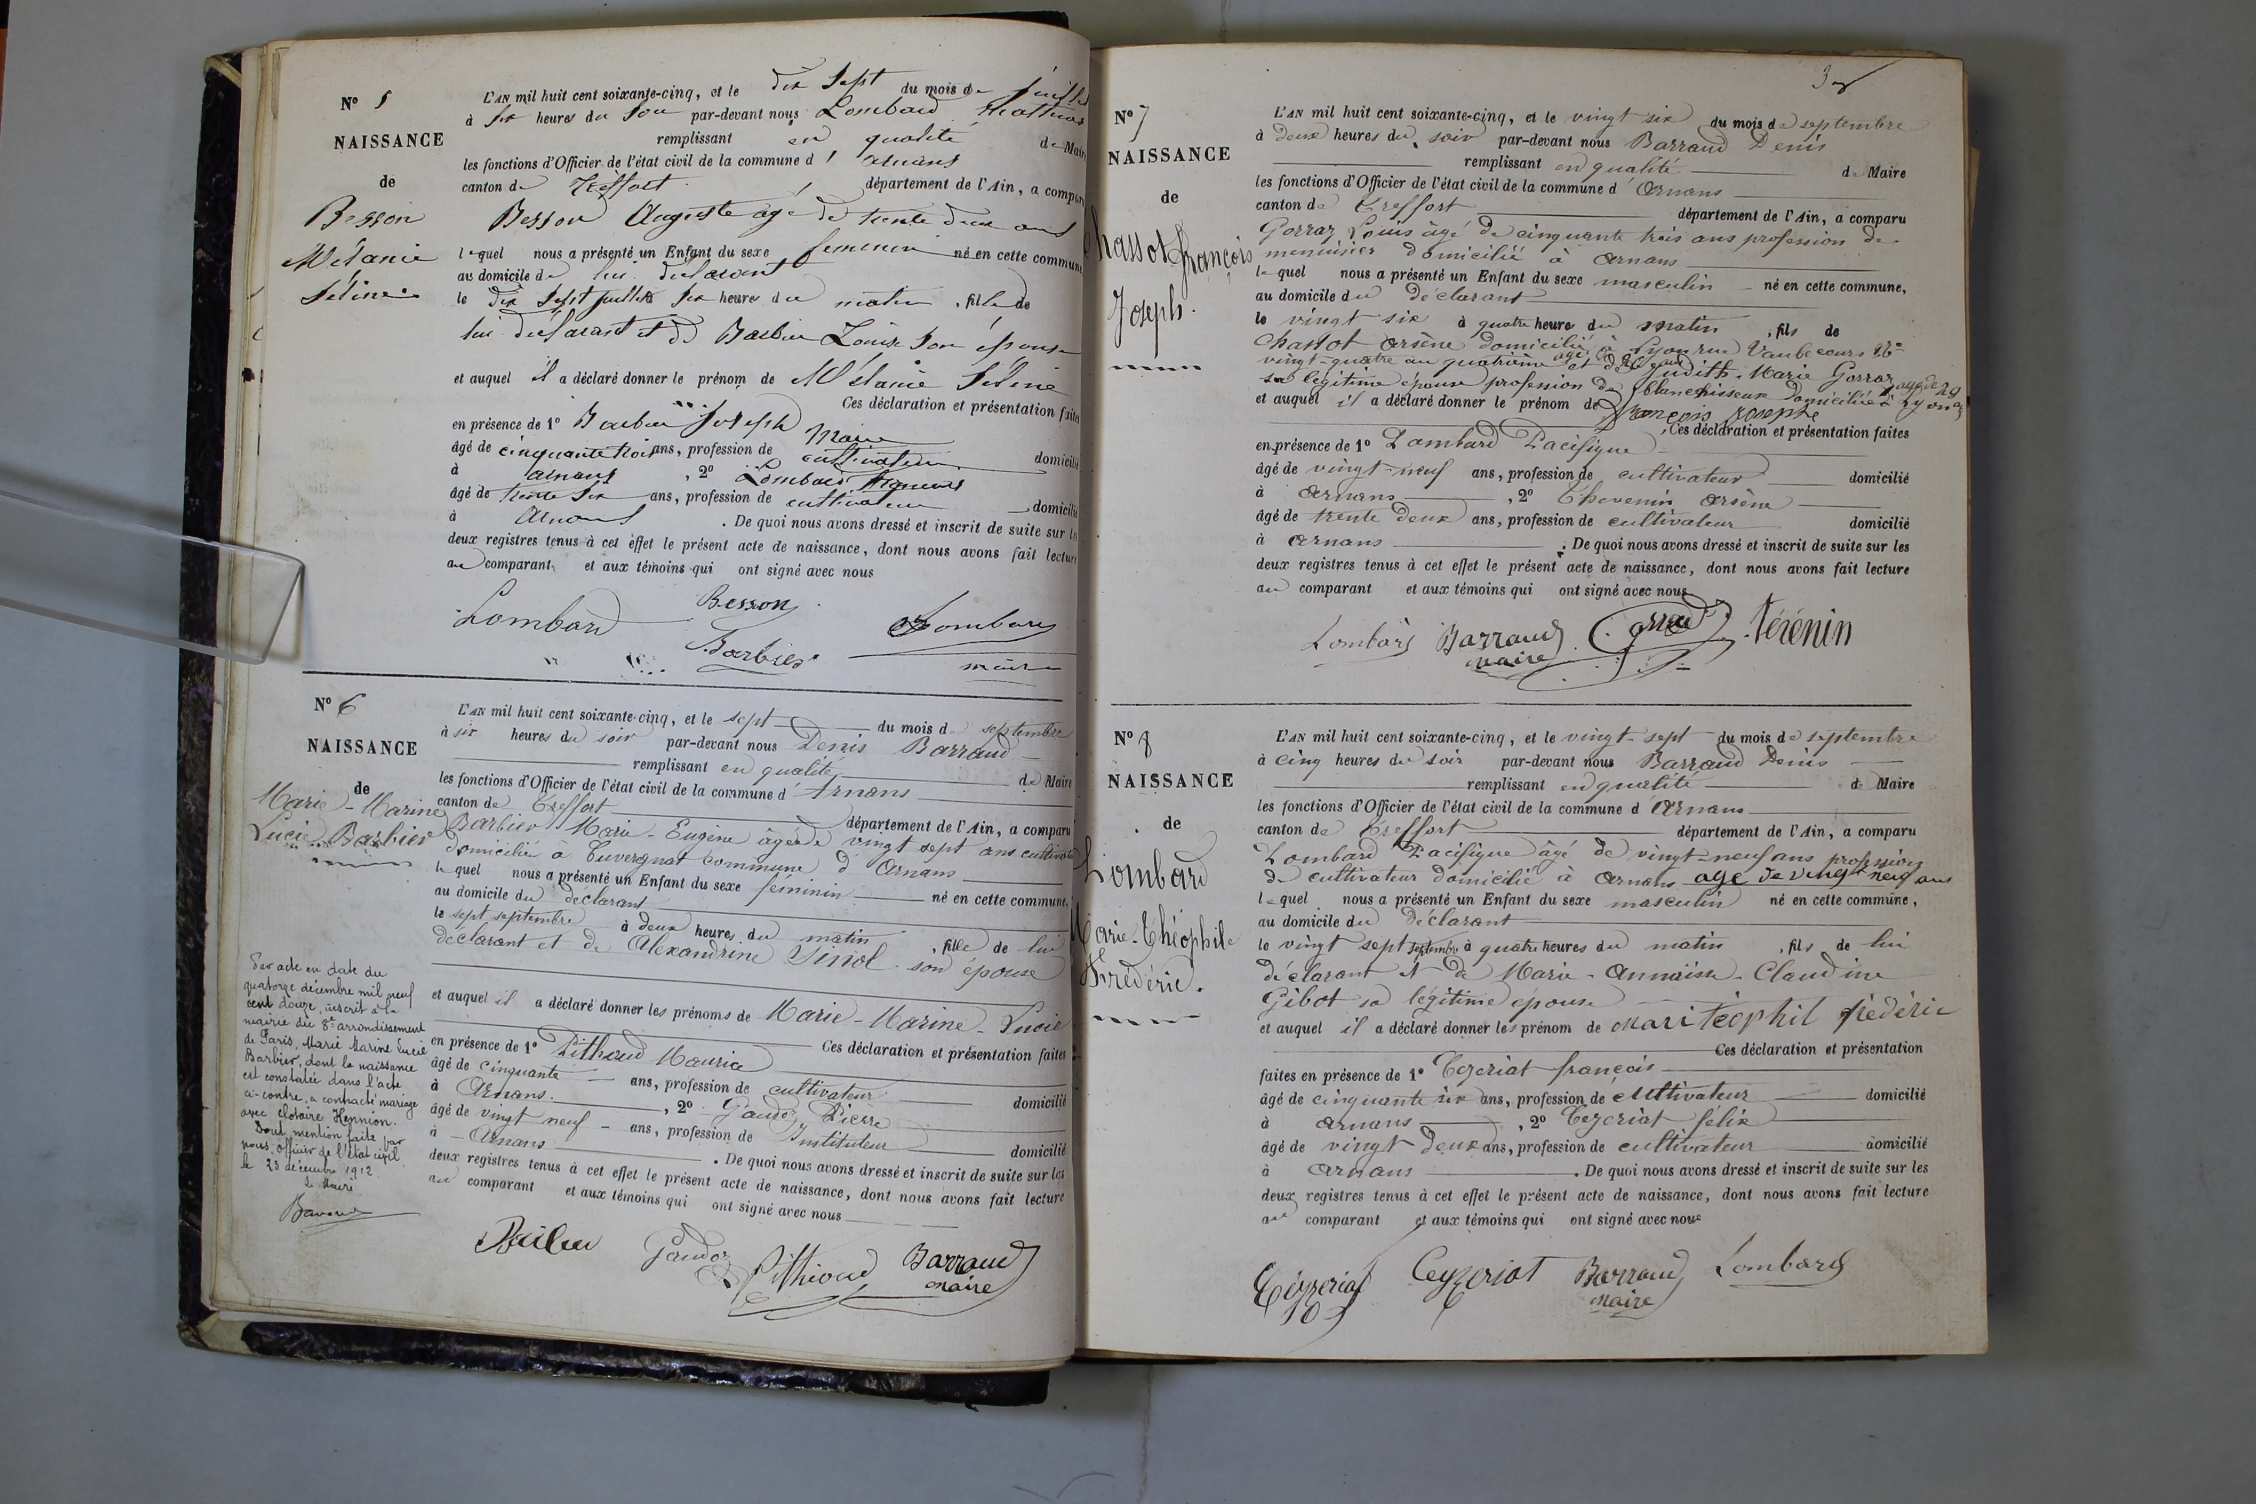 N° 5
NAISSANCE
de
Besson
Mélanie
Séline
L'AN mil huit cent soixante-cinq, et le dix sept du mois de juillet
à six heures du soir par-devant nous Lombard
remplissant en qualité de Maire
les fonctions d'Officier de l'état civil de la commune d'arnans
canton de Treffort département de l'Ain, a comparu
Besson Auguste âgé de trente deux ans
lequel nous a présenté un Enfant du sexe feminin né en cette commune
au domicile de lui déclarant
le dix sept juillet à six heures du matin, fille de
lui déclarant et de Barbier Louise son épouse
et auquel il a déclaré donner le prénom de Mélanie Séline
Ces déclaration et présentation faites
en présence de 1° Barbier Joseph Marie
âgé de cinquante trois ans, profession de cultivateur domicilié
à arnans, 2° Lombard
âgé de trente six ans, profession de cultivateur domicilié
à Arnans. De quoi nous avons dressé et inscrit de suite sur les
deux registres tenus à cet effet le présent acte de naissance, dont nous avons fait lecture
au comparant et aux témoins qui ont signé avec nous
Lombard Besson Lombard
Barbier maire
N° 6
NAISSANCE
de
Marie-Marine
Lucie Barbier
L'AN mil huit cent soixante-cinq, et le sept du mois de septembre
à six heures du soir par-devant nous Denis Barraud
remplissant en qualité de Maire
les fonctions d'Officier de l'état civil de la commune d'Arnans
canton de Treffort département de l'Ain, a comparu
Barbier Marie-Eugène âgé de vingt sept ans cultivateur
domicilié à Tuvergnat commune d'Arnans
lequel nous a présenté un Enfant du sexe féminin né en cette commune,
au domicile du déclarant
le sept septembre à deux heures du matin, fille de lui
déclarant et de Alexandrine son épouse
et auquel il a déclaré donner les prénoms de Marie-Marine-Lucie
Ces déclaration et présentation faites
en présence de 1° Pithoud Maurice
âgé de cinquante ans, profession de cultivateur domicilié
à Arnans, 2° Gaudoz Pierre
âgé de vingt neuf ans, profession de Instituteur domicilié
à Arnans. De quoi nous avons dressé et inscrit de suite sur les
deux registres tenus à cet effet le présent acte de naissance, dont nous avons fait lecture
au comparant et aux témoins qui ont signé avec nous
Gaudoz Pithioud Barraud
maire
Par acte en date du
quatorze décembre mil neuf
cent douze, inscrit à la
mairie du 8e arrondissement
de Paris, Marie Marine Lucie
Barbier, dont la naissance
est constatée dans l'acte
ci-contre, a contracté mariage
avec Clotaire Hennion.
Dont mention faite par
nous officier de l'état civil
le 23 décembre 1912
Le Maire
3
N° 7
NAISSANCE
de
Chassot François
Joseph.
L'AN mil huit cent soixante-cinq, et le vingt six du mois de septembre
à deux heures du soir par-devant nous Barraud Denis
remplissant en qualité de Maire
les fonctions d'Officier de l'état civil de la commune d'Arnans
canton de Treffort département de l'Ain, a comparu
Gorraz Louis âgé de cinquante trois ans profession de
menuisier domicilié à Arnans
lequel nous a présenté un Enfant du sexe masculin né en cette commune,
au domicile du déclarant
le vingt six à quatre heures du matin, fils de
Chassot Arsène domicilié à Lyon rue Vaubecour N°
vingt-quatre au quatrième et de Judith-Marie Gorraz âgée de 29
sa légitime épouse profession de blanchisseuse domiciliée à Lyon
et auquel il a déclaré donner le prénom de François Joseph
Ces déclaration et présentation faites
en présence de 1° Lombard Pacifique
âgé de vingt-neuf ans, profession de cultivateur domicilié
à Arnans, 2° Thevenin Arsène
âgé de trente deux ans, profession de cultivateur domicilié
à Arnans. De quoi nous avons dressé et inscrit de suite sur les
deux registres tenus à cet effet le présent acte de naissance, dont nous avons fait lecture
au comparant et aux témoins qui ont signé avec nous
Lombard Barraud Térénin
maire
N° 8
NAISSANCE
de
Lombard
Marie-Théophile
Frédéric.
L'AN mil huit cent soixante-cinq, et le vingt-sept du mois de septembre
à cinq heures du soir par-devant nous Barraud Denis
remplissant en qualité de Maire
les fonctions d'Officier de l'état civil de la commune d'Arnans
canton de Treffort département de l'Ain, a comparu
Lombard Pacifique âgé de vingt-neuf ans profession
de cultivateur domicilié à Arnans age de vingt neuf ans
lequel nous a présenté un Enfant du sexe masculin né en cette commune,
au domicile du déclarant
le vingt sept septembre à quatre heures du matin, fils de lui
déclarant et de Marie-Annaïse-Claudine
Gibot sa légitime épouse
et auquel il a déclaré donner les prénom de mari téophil frédéric
Ces déclaration et présentation
faites en présence de 1° Ceyzeriat françois
âgé de cinquante six ans, profession de cultivateur domicilié
à arnans, 2° Ceyzeriat félix
âgé de vingt deux ans, profession de cultivateur domicilié
à Arnans. De quoi nous avons dressé et inscrit de suite sur les
deux registres tenus à cet effet le présent acte de naissance, dont nous avons fait lecture
au comparant et aux témoins qui ont signé avec nous
Céyzeriat Ceyzeriat Barraud Lombard
maire